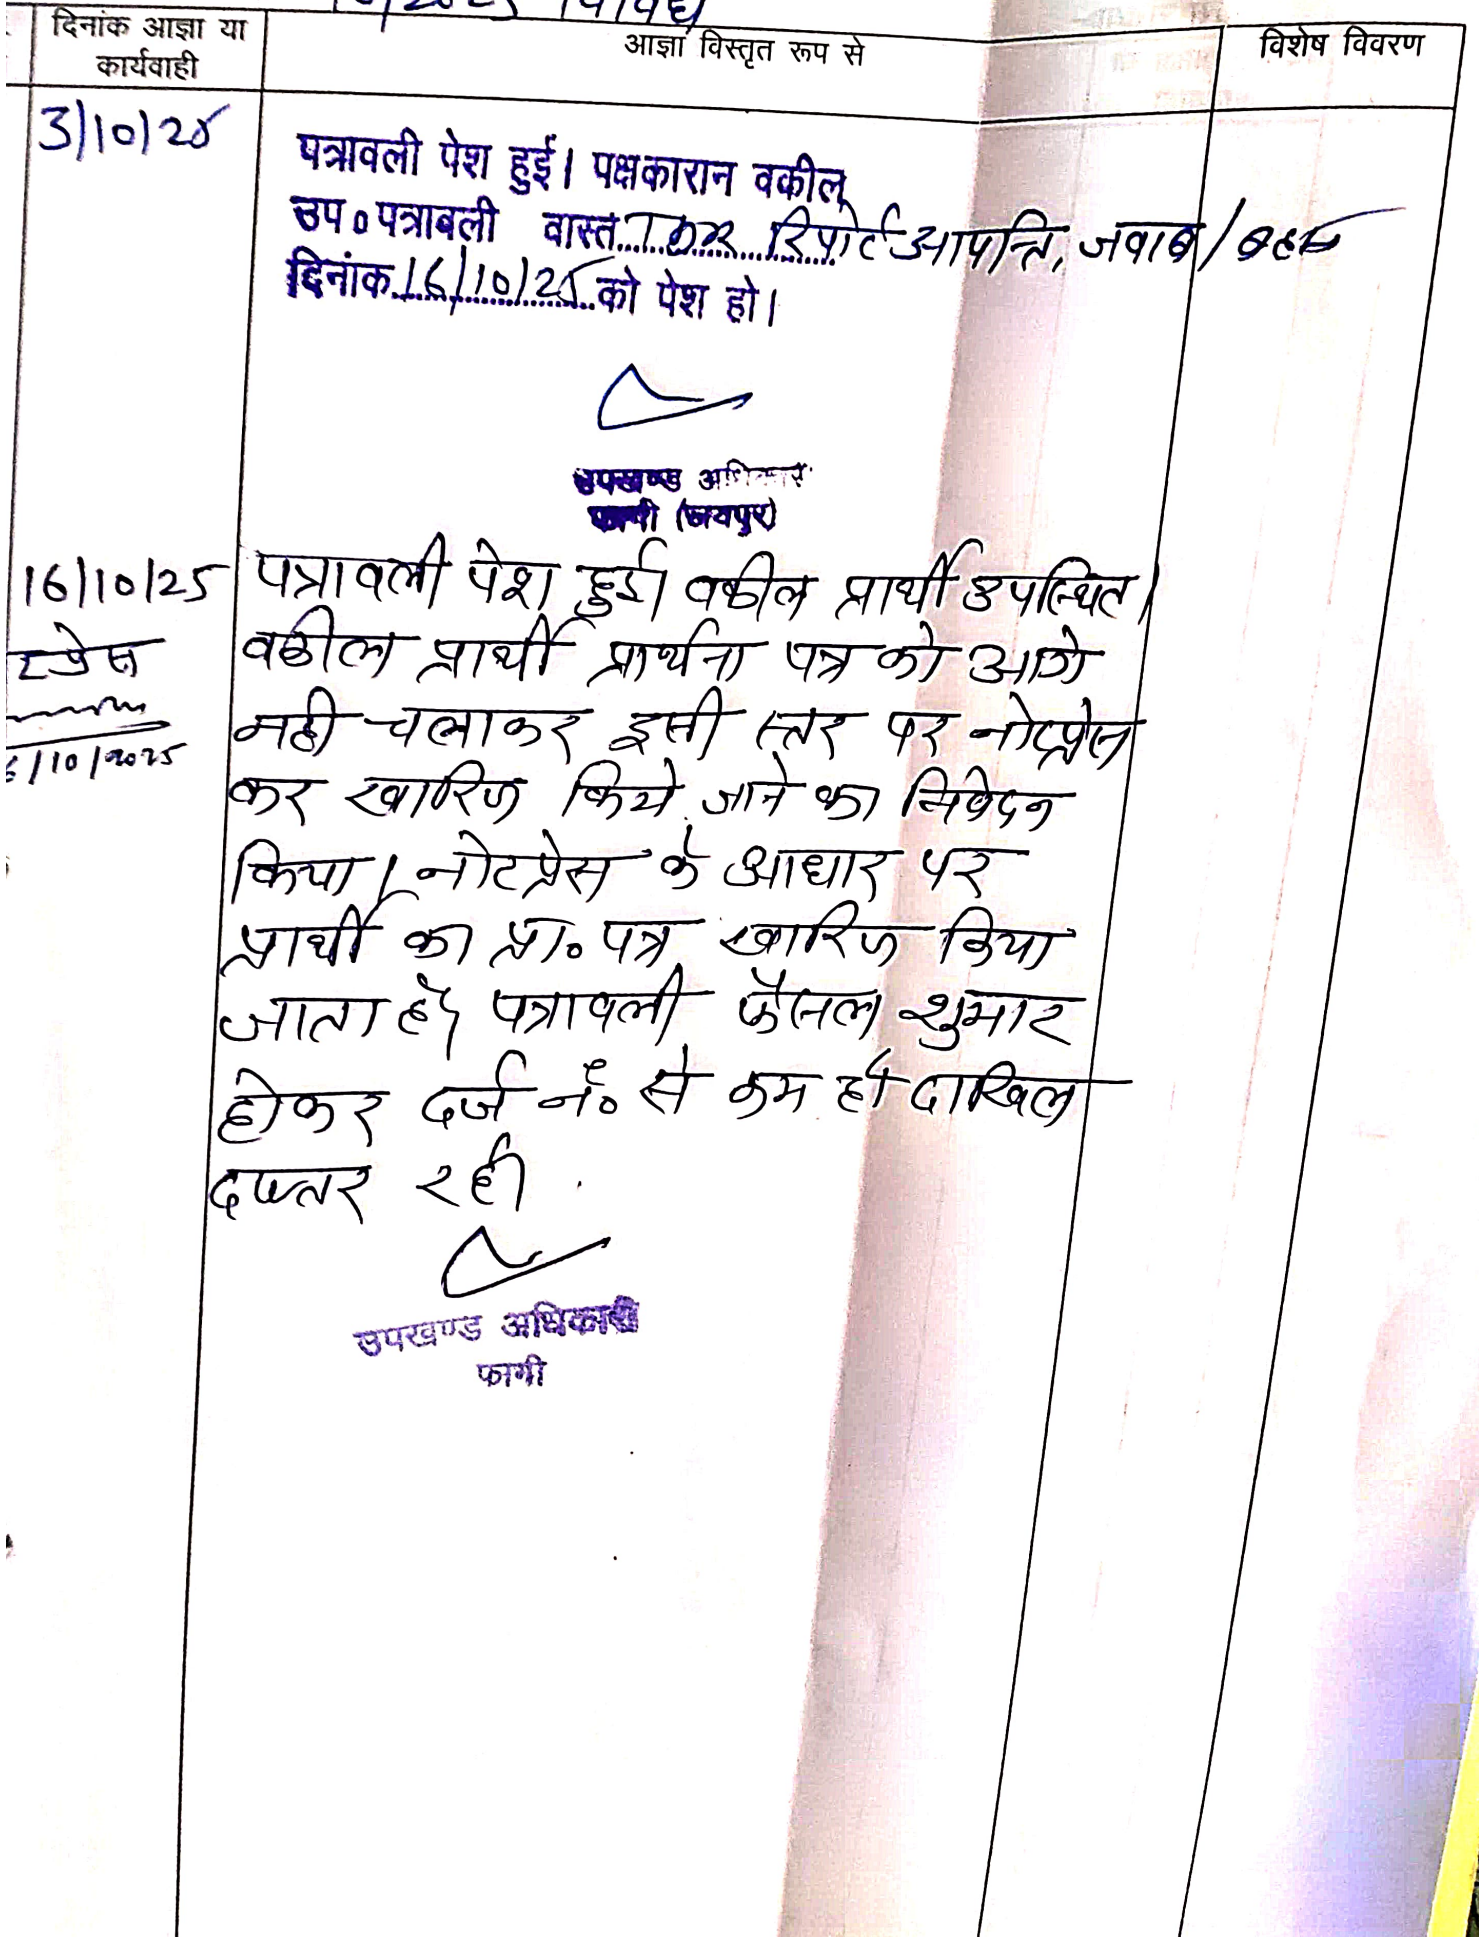 /2025 विविध
दिनांक आज्ञा या
कार्यवाही
आज्ञा विस्तृत रूप से
विशेष विवरण
3/10/25
पत्रावली पेश हुई। पक्षकारान वकील
उप० पत्रावली वास्ते रिपोर्ट आपत्ति, जवाब/बहस
दिनांक 16/10/25 को पेश हो।
उपखण्ड अधिकारी
फागी (जयपुर)
16/10/25
पत्रावली पेश हुई। वकील प्रार्थी उपस्थित।
वकील प्रार्थी प्रार्थना पत्र को आगे
नही चलाकर इसी स्तर पर नोटप्रेस
कर खारिज किये जाने का निवेदन
किया। नोटप्रेस के आधार पर
प्रार्थी का प्रा० पत्र खारिज किया
जाता है। पत्रावली फैसल शुमार
होकर दर्ज नं० से कम हो दाखिल
दफ्तर रहे।
/10/2025
उपखण्ड अधिकारी
फागी